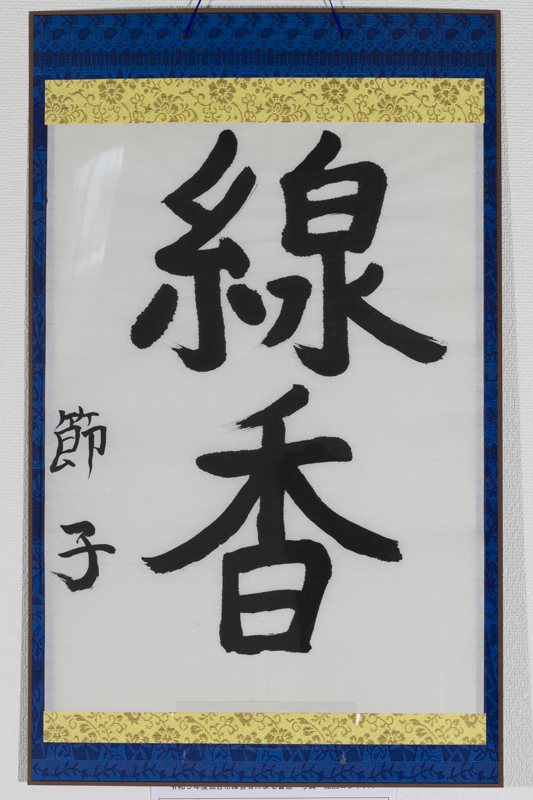 線香
節子